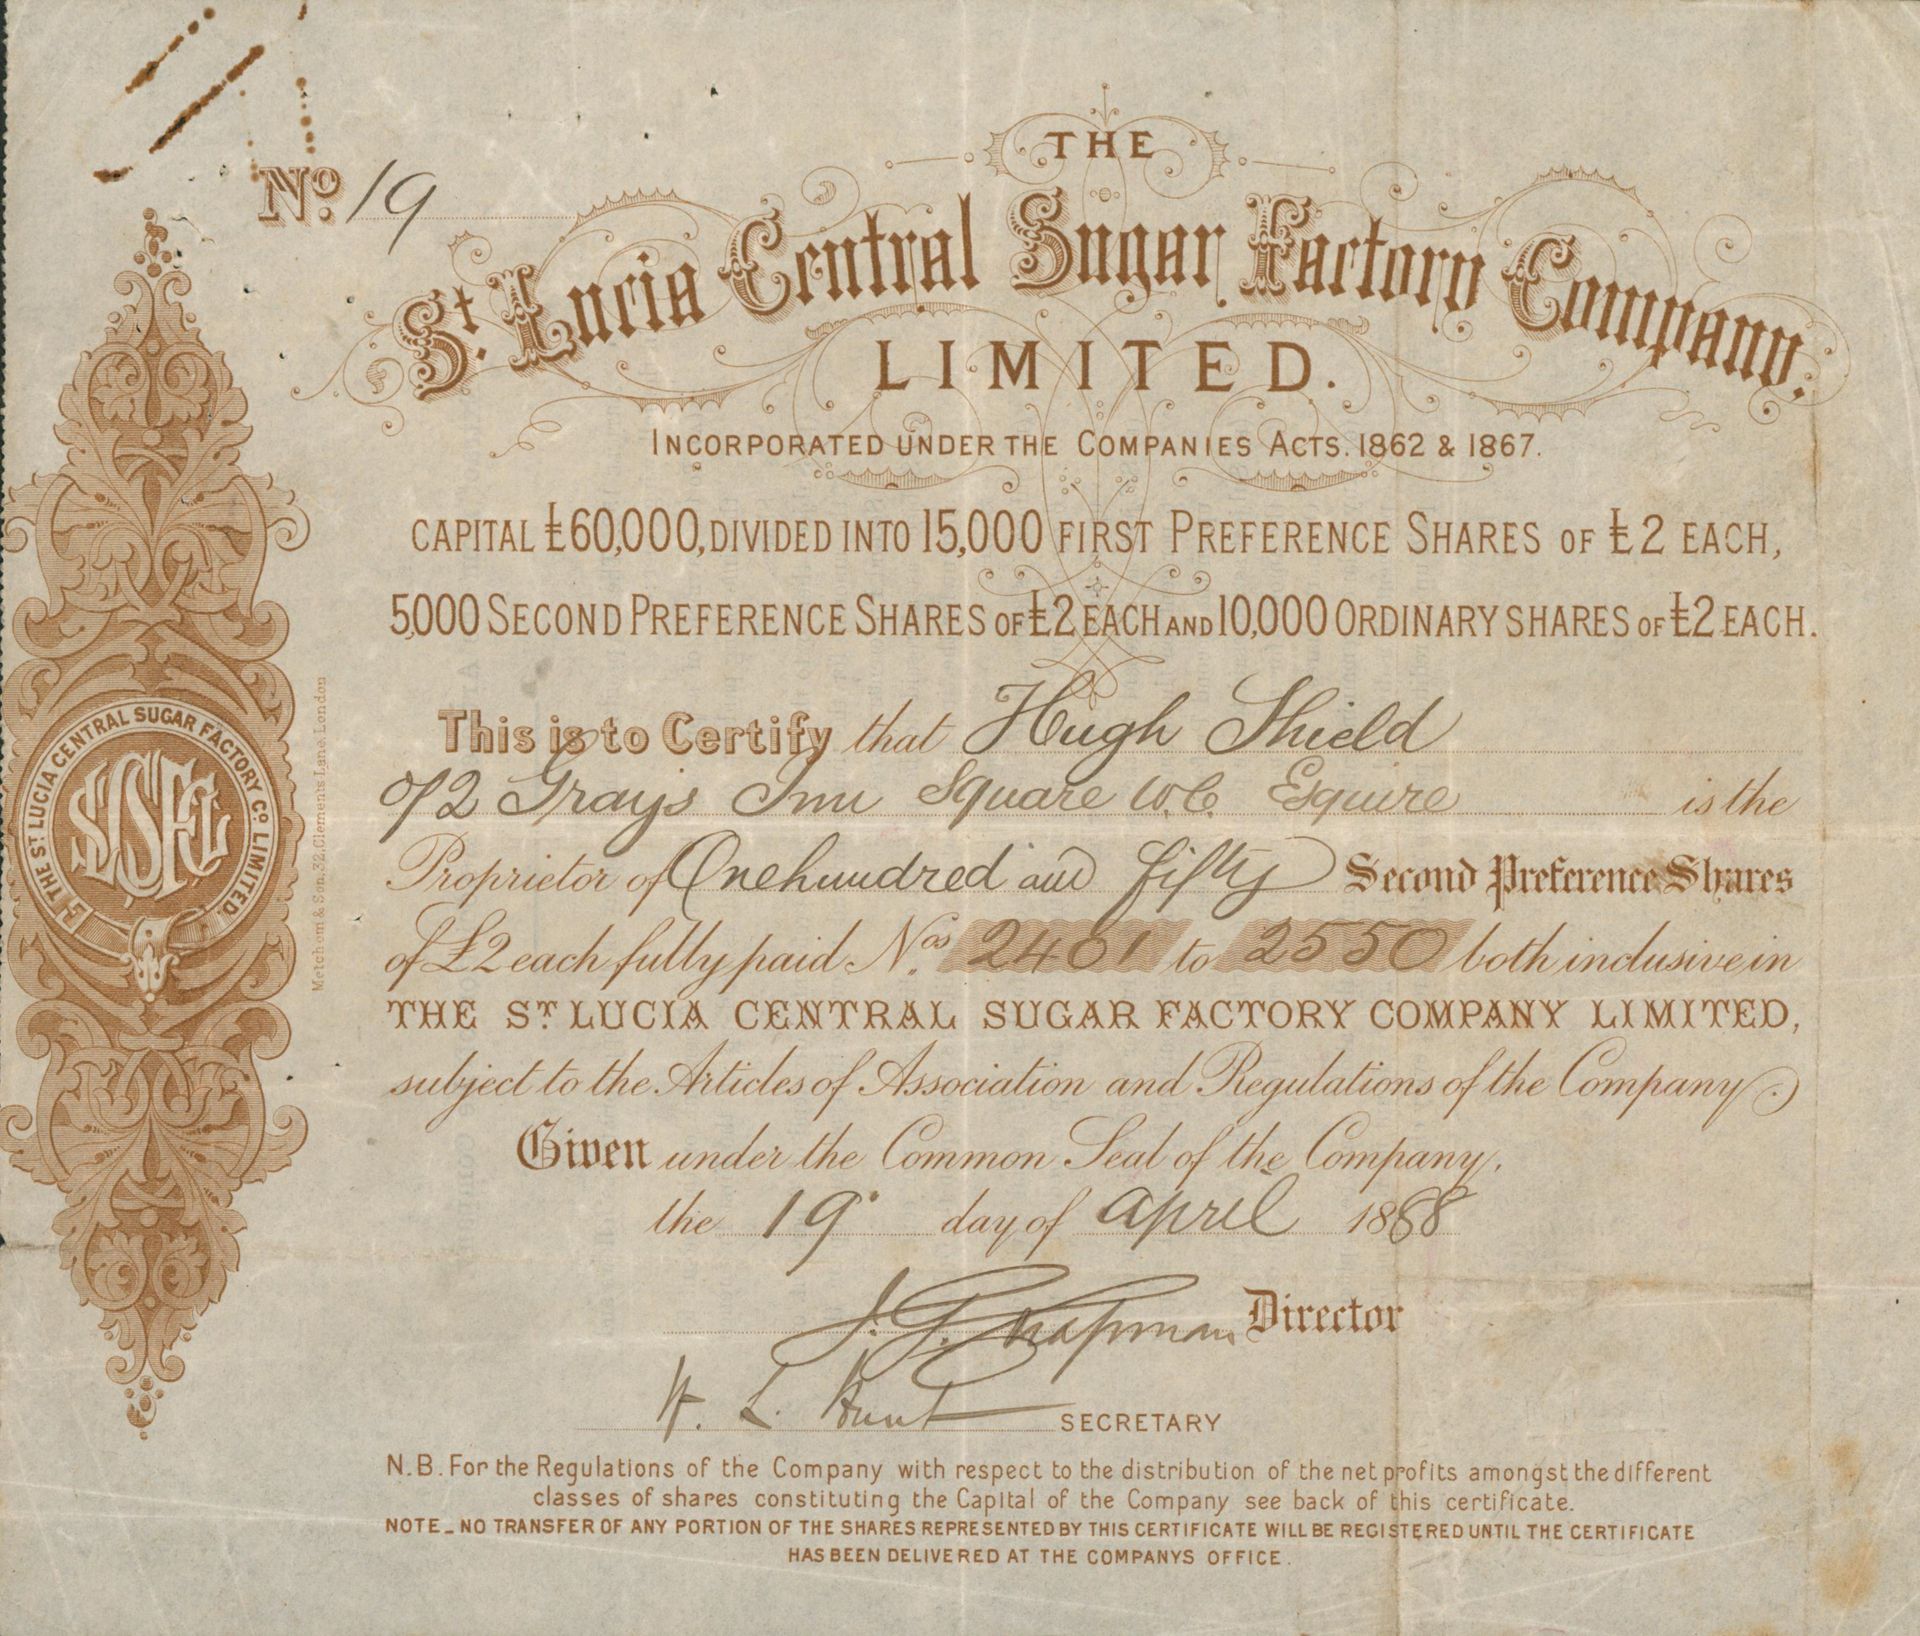 No. 19
THE
St. Lucia Central Sugar Factory Company.
LIMITED.
INCORPORATED UNDER THE COMPANIES ACTS. 1862 & 1867.
CAPITAL £60,000, DIVIDED INTO 15,000 FIRST PREFERENCE SHARES OF £2 EACH,
5,000 SECOND PREFERENCE SHARES OF £2 EACH AND 10,000 ORDINARY SHARES OF £2 EACH.
This is to Certify that Hugh Shield
of 2 Grays Inn Square W.C. Esquire is the
Proprietor of One hundred and fifty Second Preference Shares
of £2 each fully paid Nos. 2401 to 2550 both inclusive in
THE ST. LUCIA CENTRAL SUGAR FACTORY COMPANY LIMITED,
subject to the Articles of Association and Regulations of the Company.
Given under the Common Seal of the Company,
the 19 day of april 1888
J. G. Chapman Director
H. L. Hunt SECRETARY
N.B. For the Regulations of the Company with respect to the distribution of the net profits amongst the different
classes of shares constituting the Capital of the Company see back of this certificate.
NOTE_NO TRANSFER OF ANY PORTION OF THE SHARES REPRESENTED BY THIS CERTIFICATE WILL BE REGISTERED UNTIL THE CERTIFICATE
HAS BEEN DELIVERED AT THE COMPANYS OFFICE.
THE ST. LUCIA CENTRAL SUGAR FACTORY Co. LIMITED.
Metchom & Son, 32, Clements Lane, London